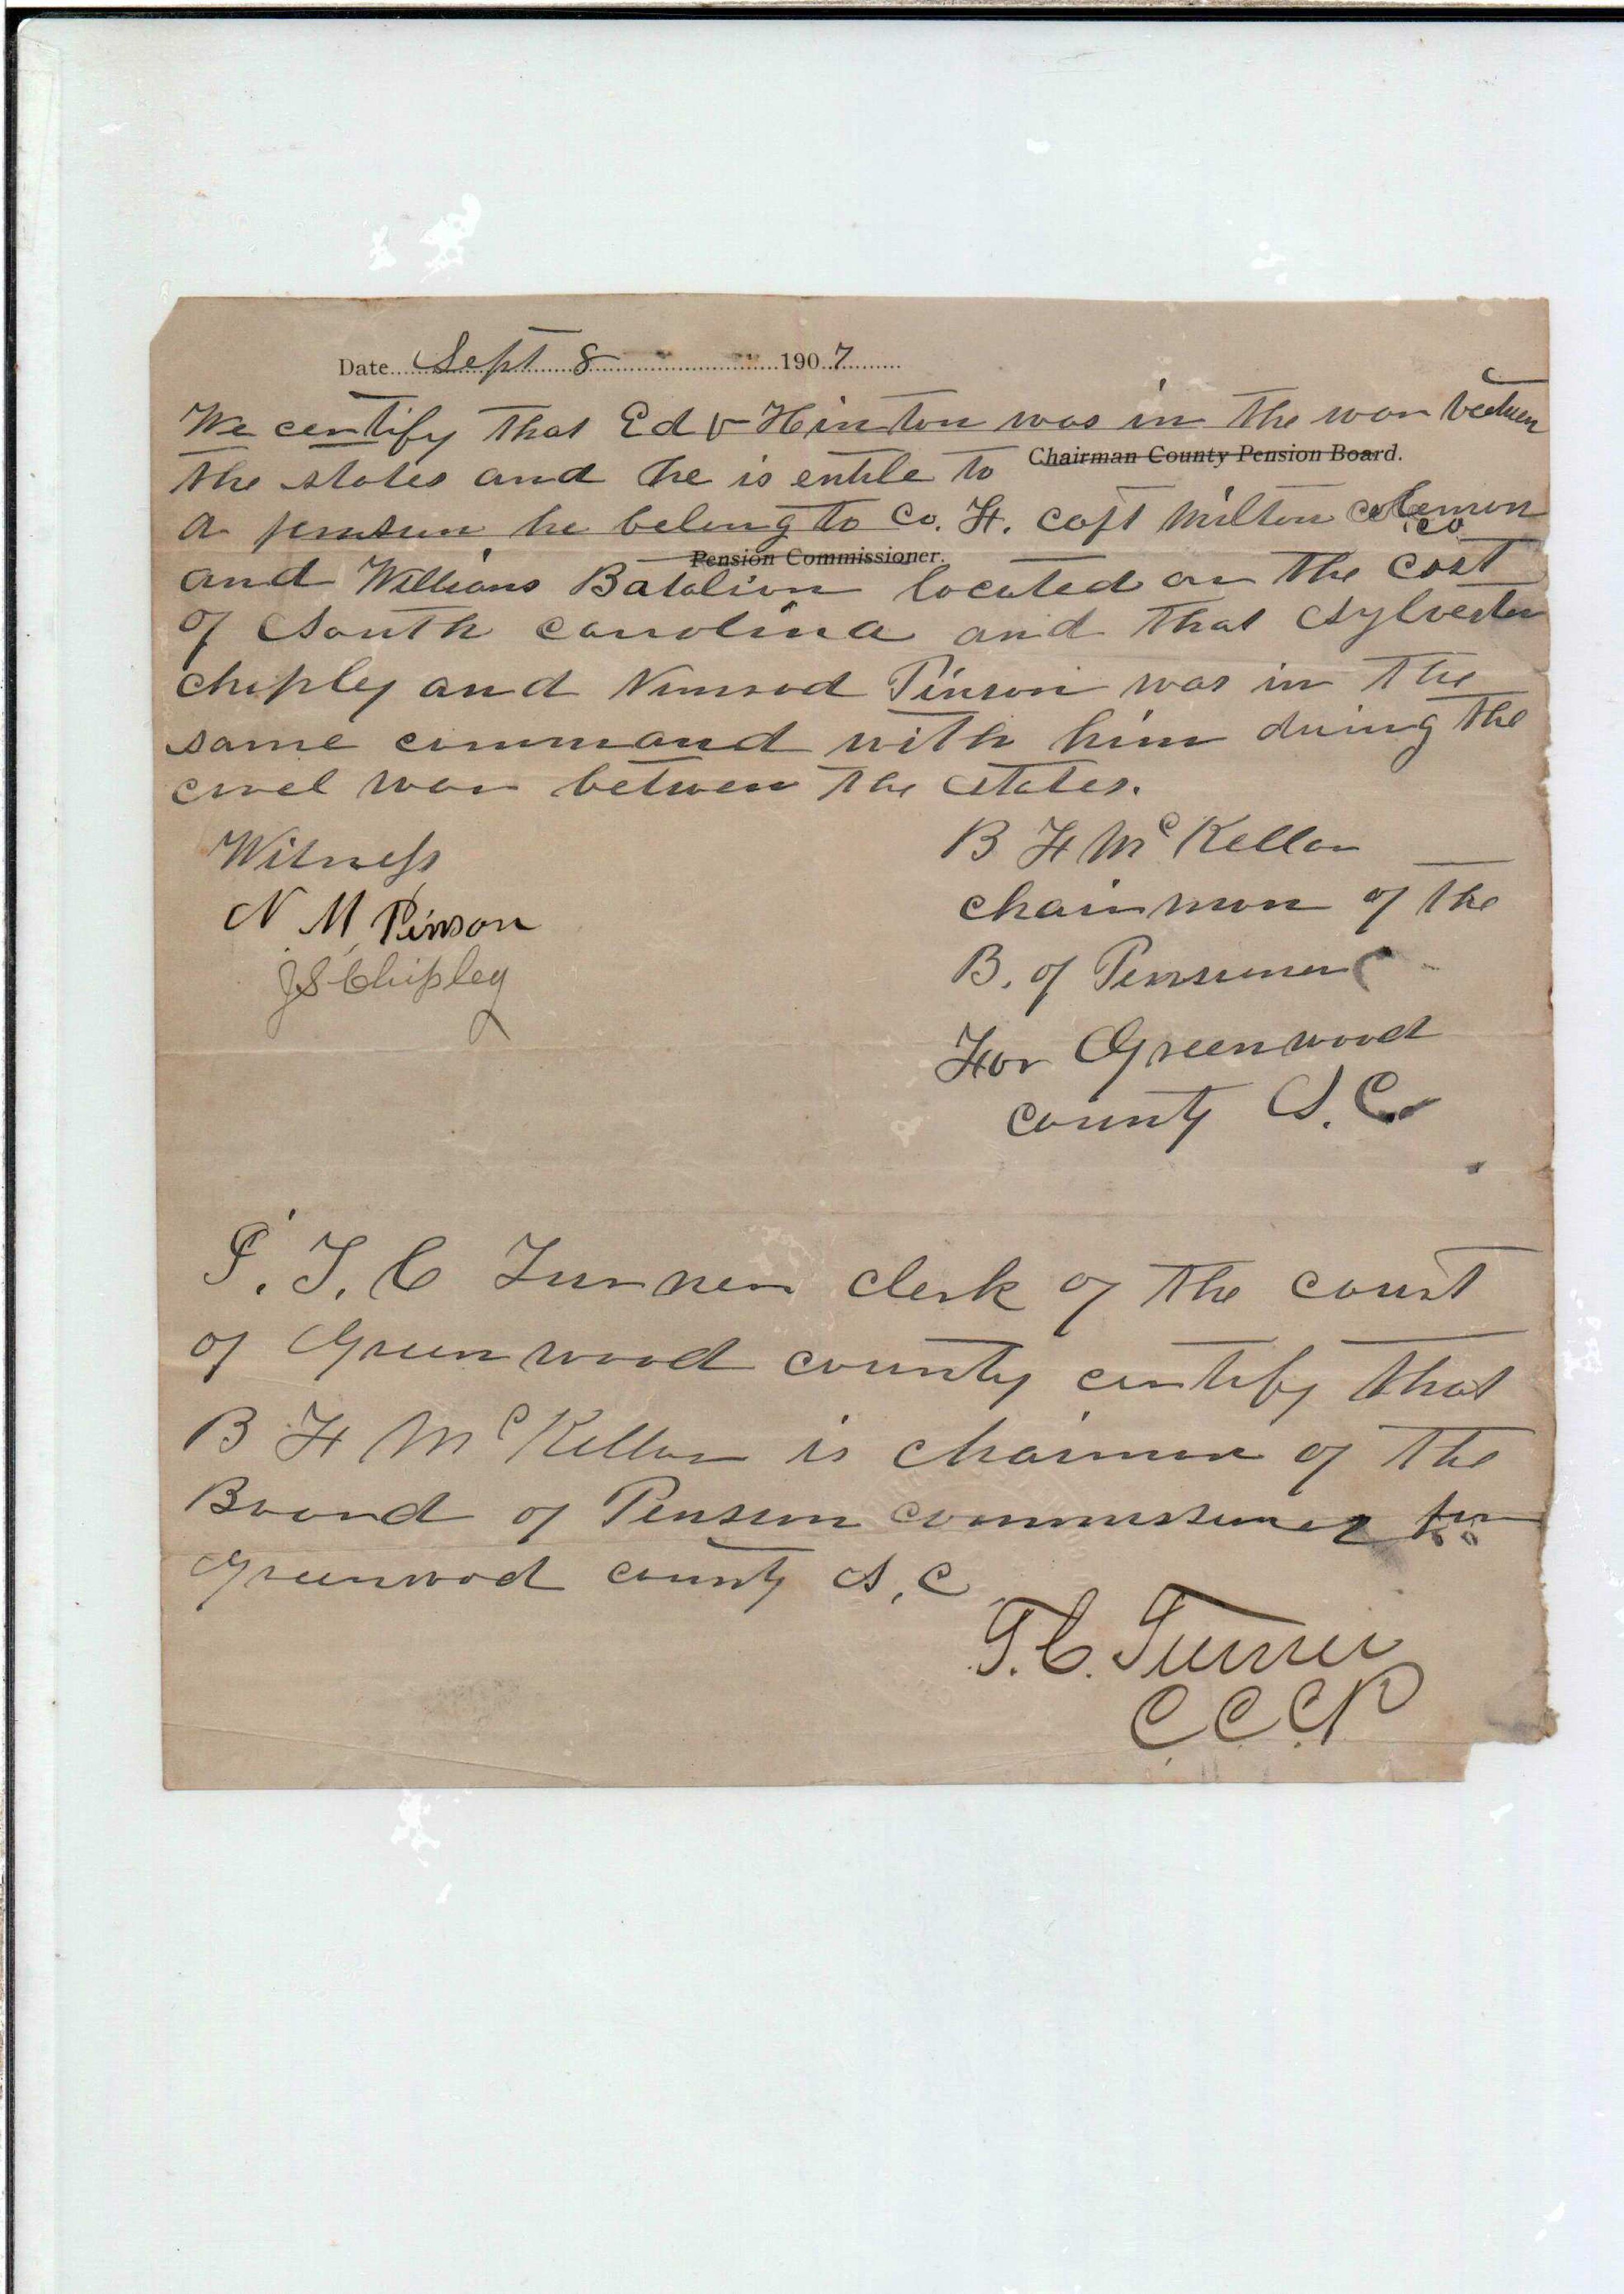 Date Sept 8 1907
We certify that Ed v Hinton was in the war between
the states and he is entile to Chairman County Pension Board.
a pension he belong to Co. F. capt Milton
Pension Commissioner.
and Willians Batalion located on the cost
of South carolina and that Sylvester
chipley and Nimrod Pinson was in the
same command with him during the
civel war between the states.
Witness
N M Pinson
J S Chipley
B F McKellar
chairman of the
B. of Pensioner
For Greenwood
county S. C.
I. T. C Turner clerk of the court
of Greenwood county certify that
B F McKellar is chairman of the
Board of Pension commissioner for
Greenwood county S. C
T. C. Turner
C C C P